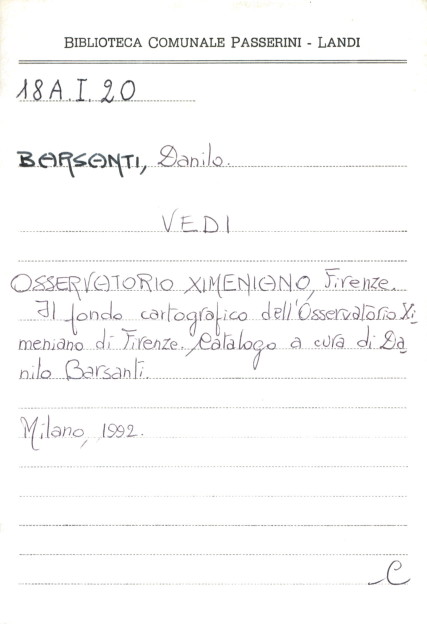 BIBLIOTECA COMUNALE PASSERINI - LANDI
18A.I.20
BARSANTI, Danilo.
VEDI
OSSERVATORIO XIMENIANO, Firenze.
Il fondo cartografico dell'Osservatorio Xi
meniano di Firenze. Catalogo a cura di Da
nilo Barsanti.
Milano, 1992.
C